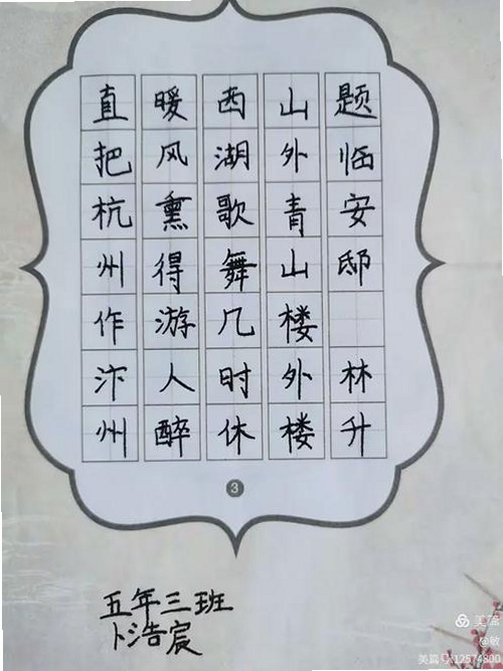 题临安邸 林升
山外青山楼外楼
西湖歌舞几时休
暖风熏得游人醉
直把杭州作汴州
3
五年三班
卜浩宸
美篇
@敏
美篇号:12574800